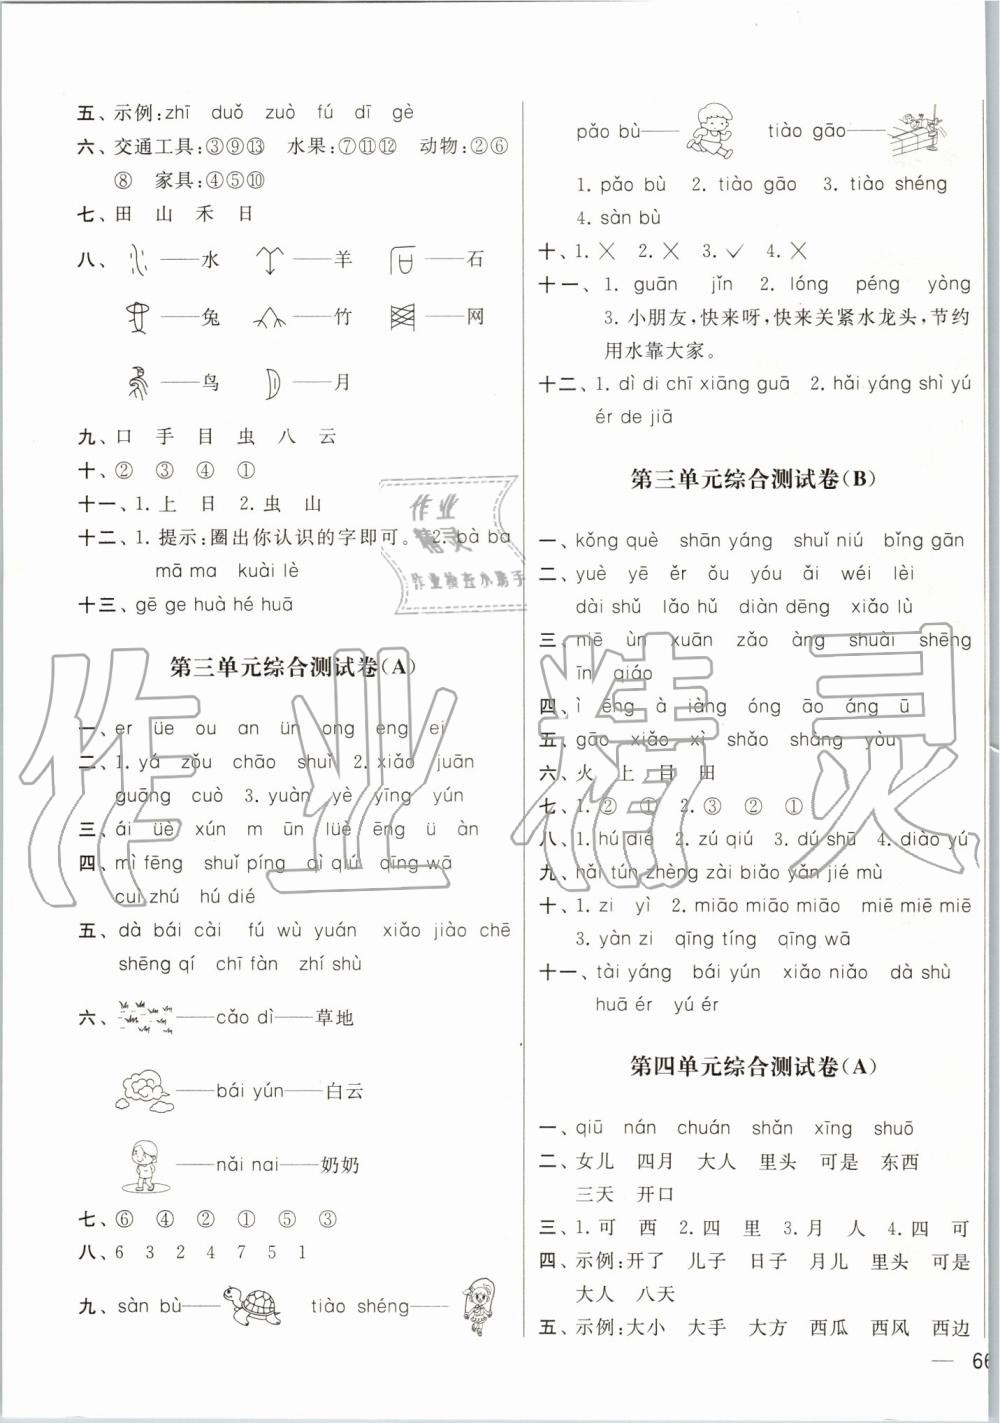 五、示例:zhī duǒ zuò fú dī gè
六、交通工具:③⑨⑬ 水果:⑦⑪⑫ 动物:②⑥
⑧ 家具:④⑤⑩
七、田 山 禾 日
八、——水 ——羊 ——石
——兔 ——竹 ——网
——鸟 ——月
九、口 手 目 虫 八 云
十、② ③ ④ ①
十一、1. 上 日 2. 虫 山
十二、1. 提示:圈出你认识的字即可。 2. bà ba
mā ma kuài lè
十三、gē ge huà hé huā
第三单元综合测试卷(A)
一、er üe ou an ün ong eng ei
二、1. yá zǒu chāo shuǐ 2. xiǎo juān
guāng cuò 3. yuàn yè yīng yún
三、ái üè xún m ūn lüè ēng ü àn
四、mì fēng shuǐ píng qì qiú qīng wā
cui zhú hú dié
五、dà bái cài fú wù yuán xiǎo jiào chē
shēng qí chī fàn zhí shù
六、——cǎo dì——草地
——bái yún——白云
——nǎi nai——奶奶
七、⑥ ④ ② ① ⑤ ③
八、6 3 2 4 7 5 1
九、sàn bù—— tiào shéng——
pǎo bù—— tiào gāo——
1. pǎo bù 2. tiào gāo 3. tiào shéng
4. sàn bù
十、1. ╳ 2. ╳ 3. ✓ 4. ╳
十一、1. guān jǐn 2. lóng péng yòng
3. 小朋友,快来呀,快来关紧水龙头,节约
用水靠大家。
十二、1. dì di chī xiāng guā 2. hǎi yáng shì yú
ér de jiā
第三单元综合测试卷(B)
一、kǒng què shān yáng shuǐ niú bǐng gān
二、yuè yē ěr ǒu yóu ǎi wéi lèi
dài shǔ lǎo hǔ diàn dēng xiǎo lù
三、miē ùn xuān zǎo àng shuài shēng
īn qiáo
四、ì ēng à iàng óng āo áng ū
五、gāo xiǎo xì shǎo shāng yòu
六、火 上 目 田
七、1. ② ① 2. ③ ② ①
八、1. hú dié 2. zú qiú 3. dú shū 4. diào yú
九、hǎi tún zhèng zài biǎo yǎn jié mù
十、1. zi yì 2. miāo miāo miāo miē miē miē
3. yàn zi qīng tíng qīng wā
十一、tài yáng bái yún xiǎo niǎo dà shù
huā ér yú ér
第四单元综合测试卷(A)
一、qiū nán chuán shǎn xīng shuō
二、女儿 四月 大人 里头 可是 东西
三天 开口
三、1. 可 西 2. 四 里 3. 月 人 4. 四 可
四、示例:开了 儿子 日子 月儿 里头 可是
大人 八天
五、示例:大小 大手 大方 西瓜 西风 西边
— 66
作业
精灵
作业检查小助手
作业精灵